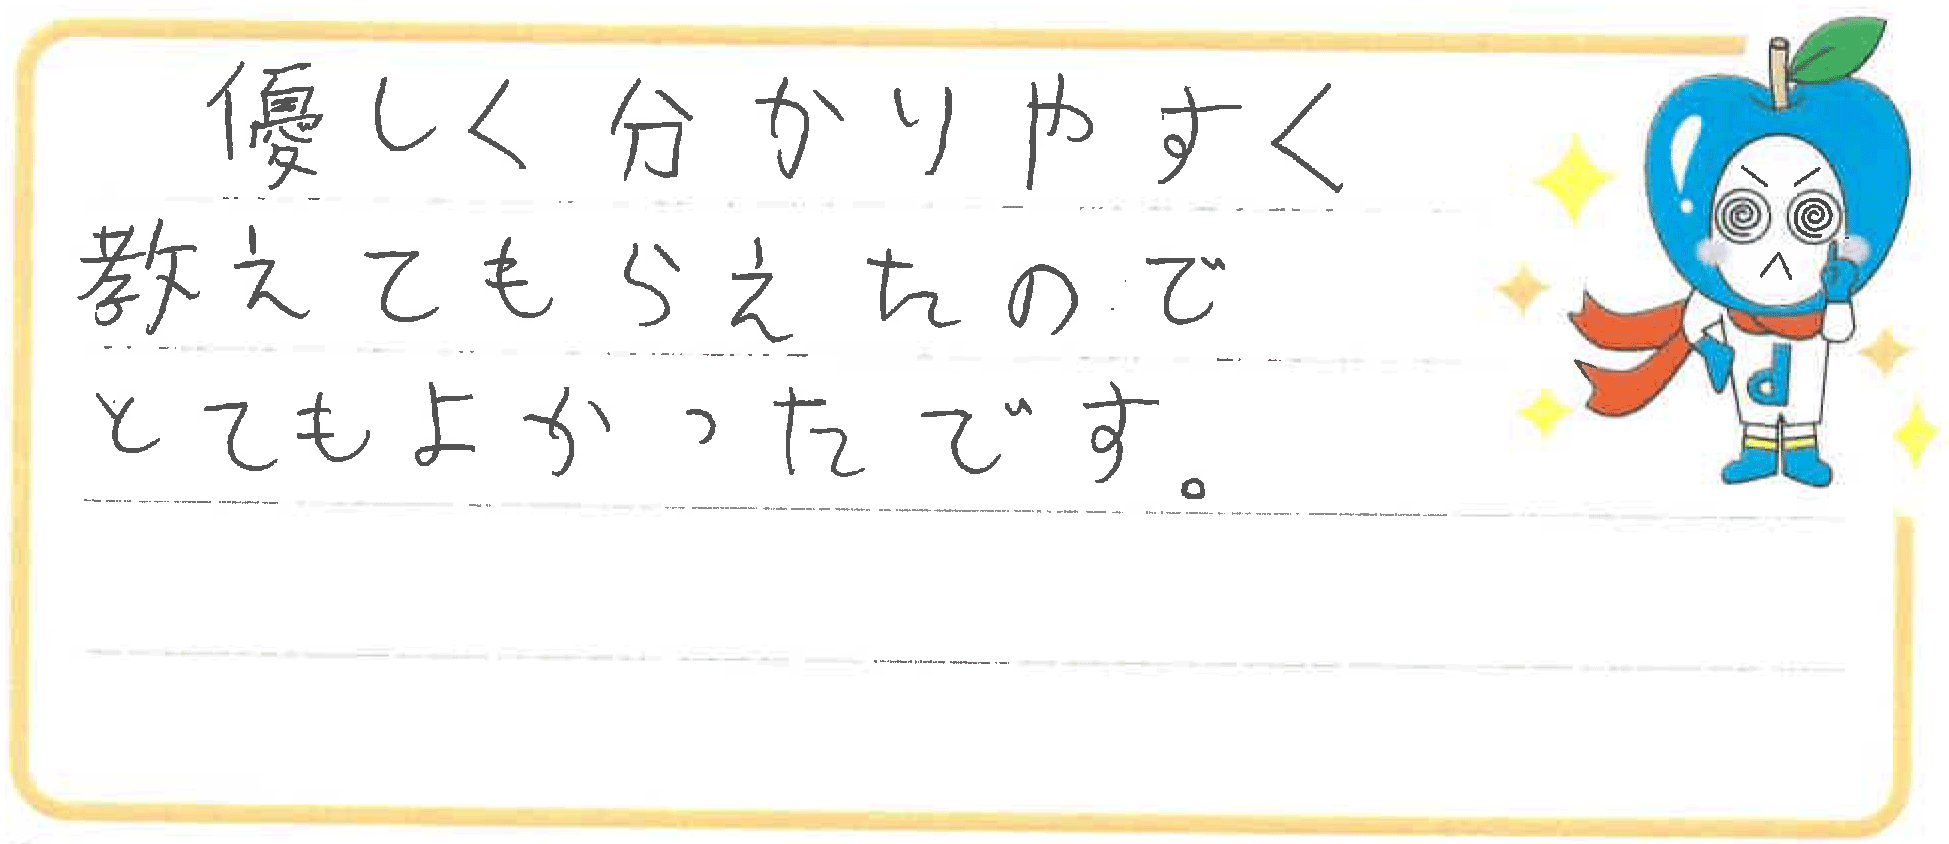 優しく分かりやすく
教えてもらえたので
とてもよかったです。
d